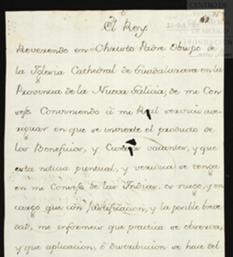 El Rey
Reverendo en Christo Padre Obispo de
la Yglesia Cathedral de Guadalaxara en la
Provincia de la Nueva Galicia, de mi Con
sejo. Conviniendo à mi Real servicio ave-
riguar en que se invierte el producto de
los Beneficios, y Curatos vacantes, y que
esta noticia puntual, y veridica se tenga
en mi Consejo de las Indias. os ruego, y en
cargo que con justificacion, y la posible breve
dad, me informeis que practica se observa,
y que aplicacion, ò distribucion se hace del